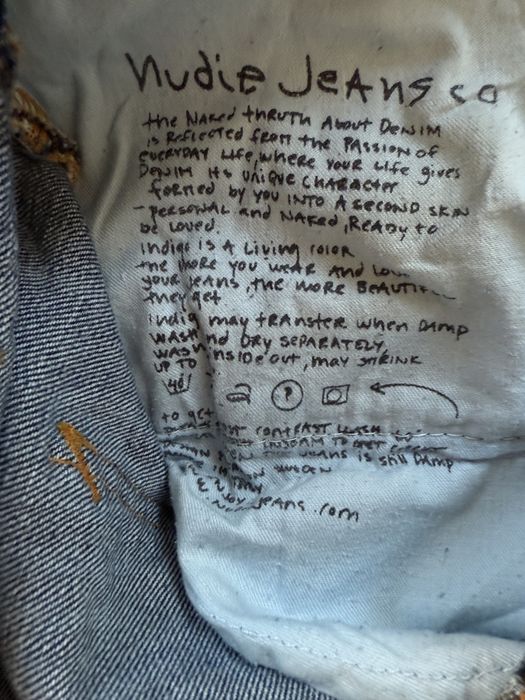 nudie Jeans co
the NAKED thRUTH About DENIM
is REFLECTED from the PASSION of
EVERYDAY LIFE, WHERE YOUR LIFE gives
DENIM its UNIQUE CHARACTER
formed by YOU INTO A SECOND SKIN
- PERSONAL and NAKED, READY to
be LOVED.
INDIGO IS A Living COLOR,
the MORE YOU WEAR AND
YOUR JEANS, the MORE
they get
may tRANSFER WHEN DAMP
DRY SEPARATELY,
INSIDE OUT, MAY SHRINK
UP TO
40
P
to get
CONTRAST WASH
TO GET
JEANS is still DAMP
SWEDEN
JEANS.COM